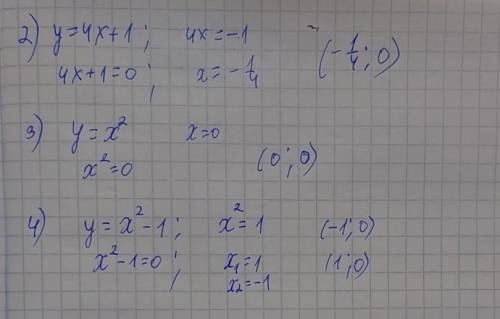 2) y=4x+1; 4x=-1 (-1/4; 0)
4x+1=0; x=-1/4
3) y=x² x=0
x²=0 (0; 0)
4) y=x²-1; x²=1 (-1; 0)
x²-1=0; x₁=1 (1; 0)
x₂=-1